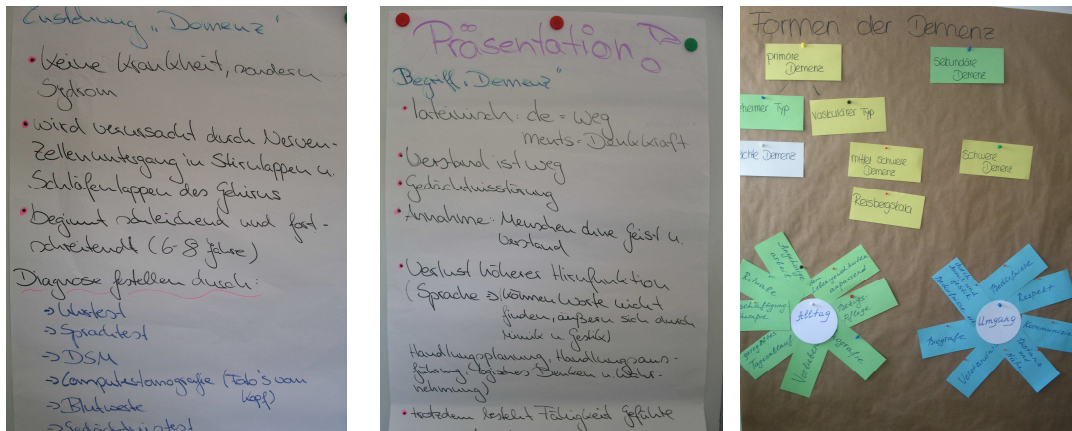 Einführung „Demenz"
• keine Krankheit, sondern
Sydrom
• wird verursacht durch Nerven-
zellenuntergang in Stirnlappen u.
Schläfenlappen des Gehirns
• beginnt schleichend und fort-
schreitendt (6-8 Jahre)
Diagnose festellen durch:
→ Uhrtest
→ Sprachtest
→ DSM
→ Computertomografie (Foto's vom
Kopf)
→ Blutwerte
→ Gedächtnistest
Präsentation
Begriff „Demenz"
• lateinisch: de = weg
ments = Denkkraft
• Verstand ist weg
• Gedächtnisstörung
• Annahme: Menschen ohne Geist u.
Verstand
• Verlust höherer Hirnfunktion
(Sprache → können Worte nicht
finden, äußern sich durch
Mimik u Gestik)
Handlungsplanung, Handlungsaus-
führung, logisches Denken u. Wahr-
nehmung)
• trotzdem besteht Fähigkeit Gefühle
Formen der Demenz
primäre
Demenz
Sekundäre
Demenz
heimer Typ
Vaskulärer Typ
ichte Demenz
mittel schwere
Demenz
Schwere
Demenz
Reisbergskala
Alltag
Angehörige
Rituale
Lebensgewohnheiten
anpassend
Bezugs-
pflege
Tagesablauf
Umgang
Bedürfnisse
Respekt
Biografie